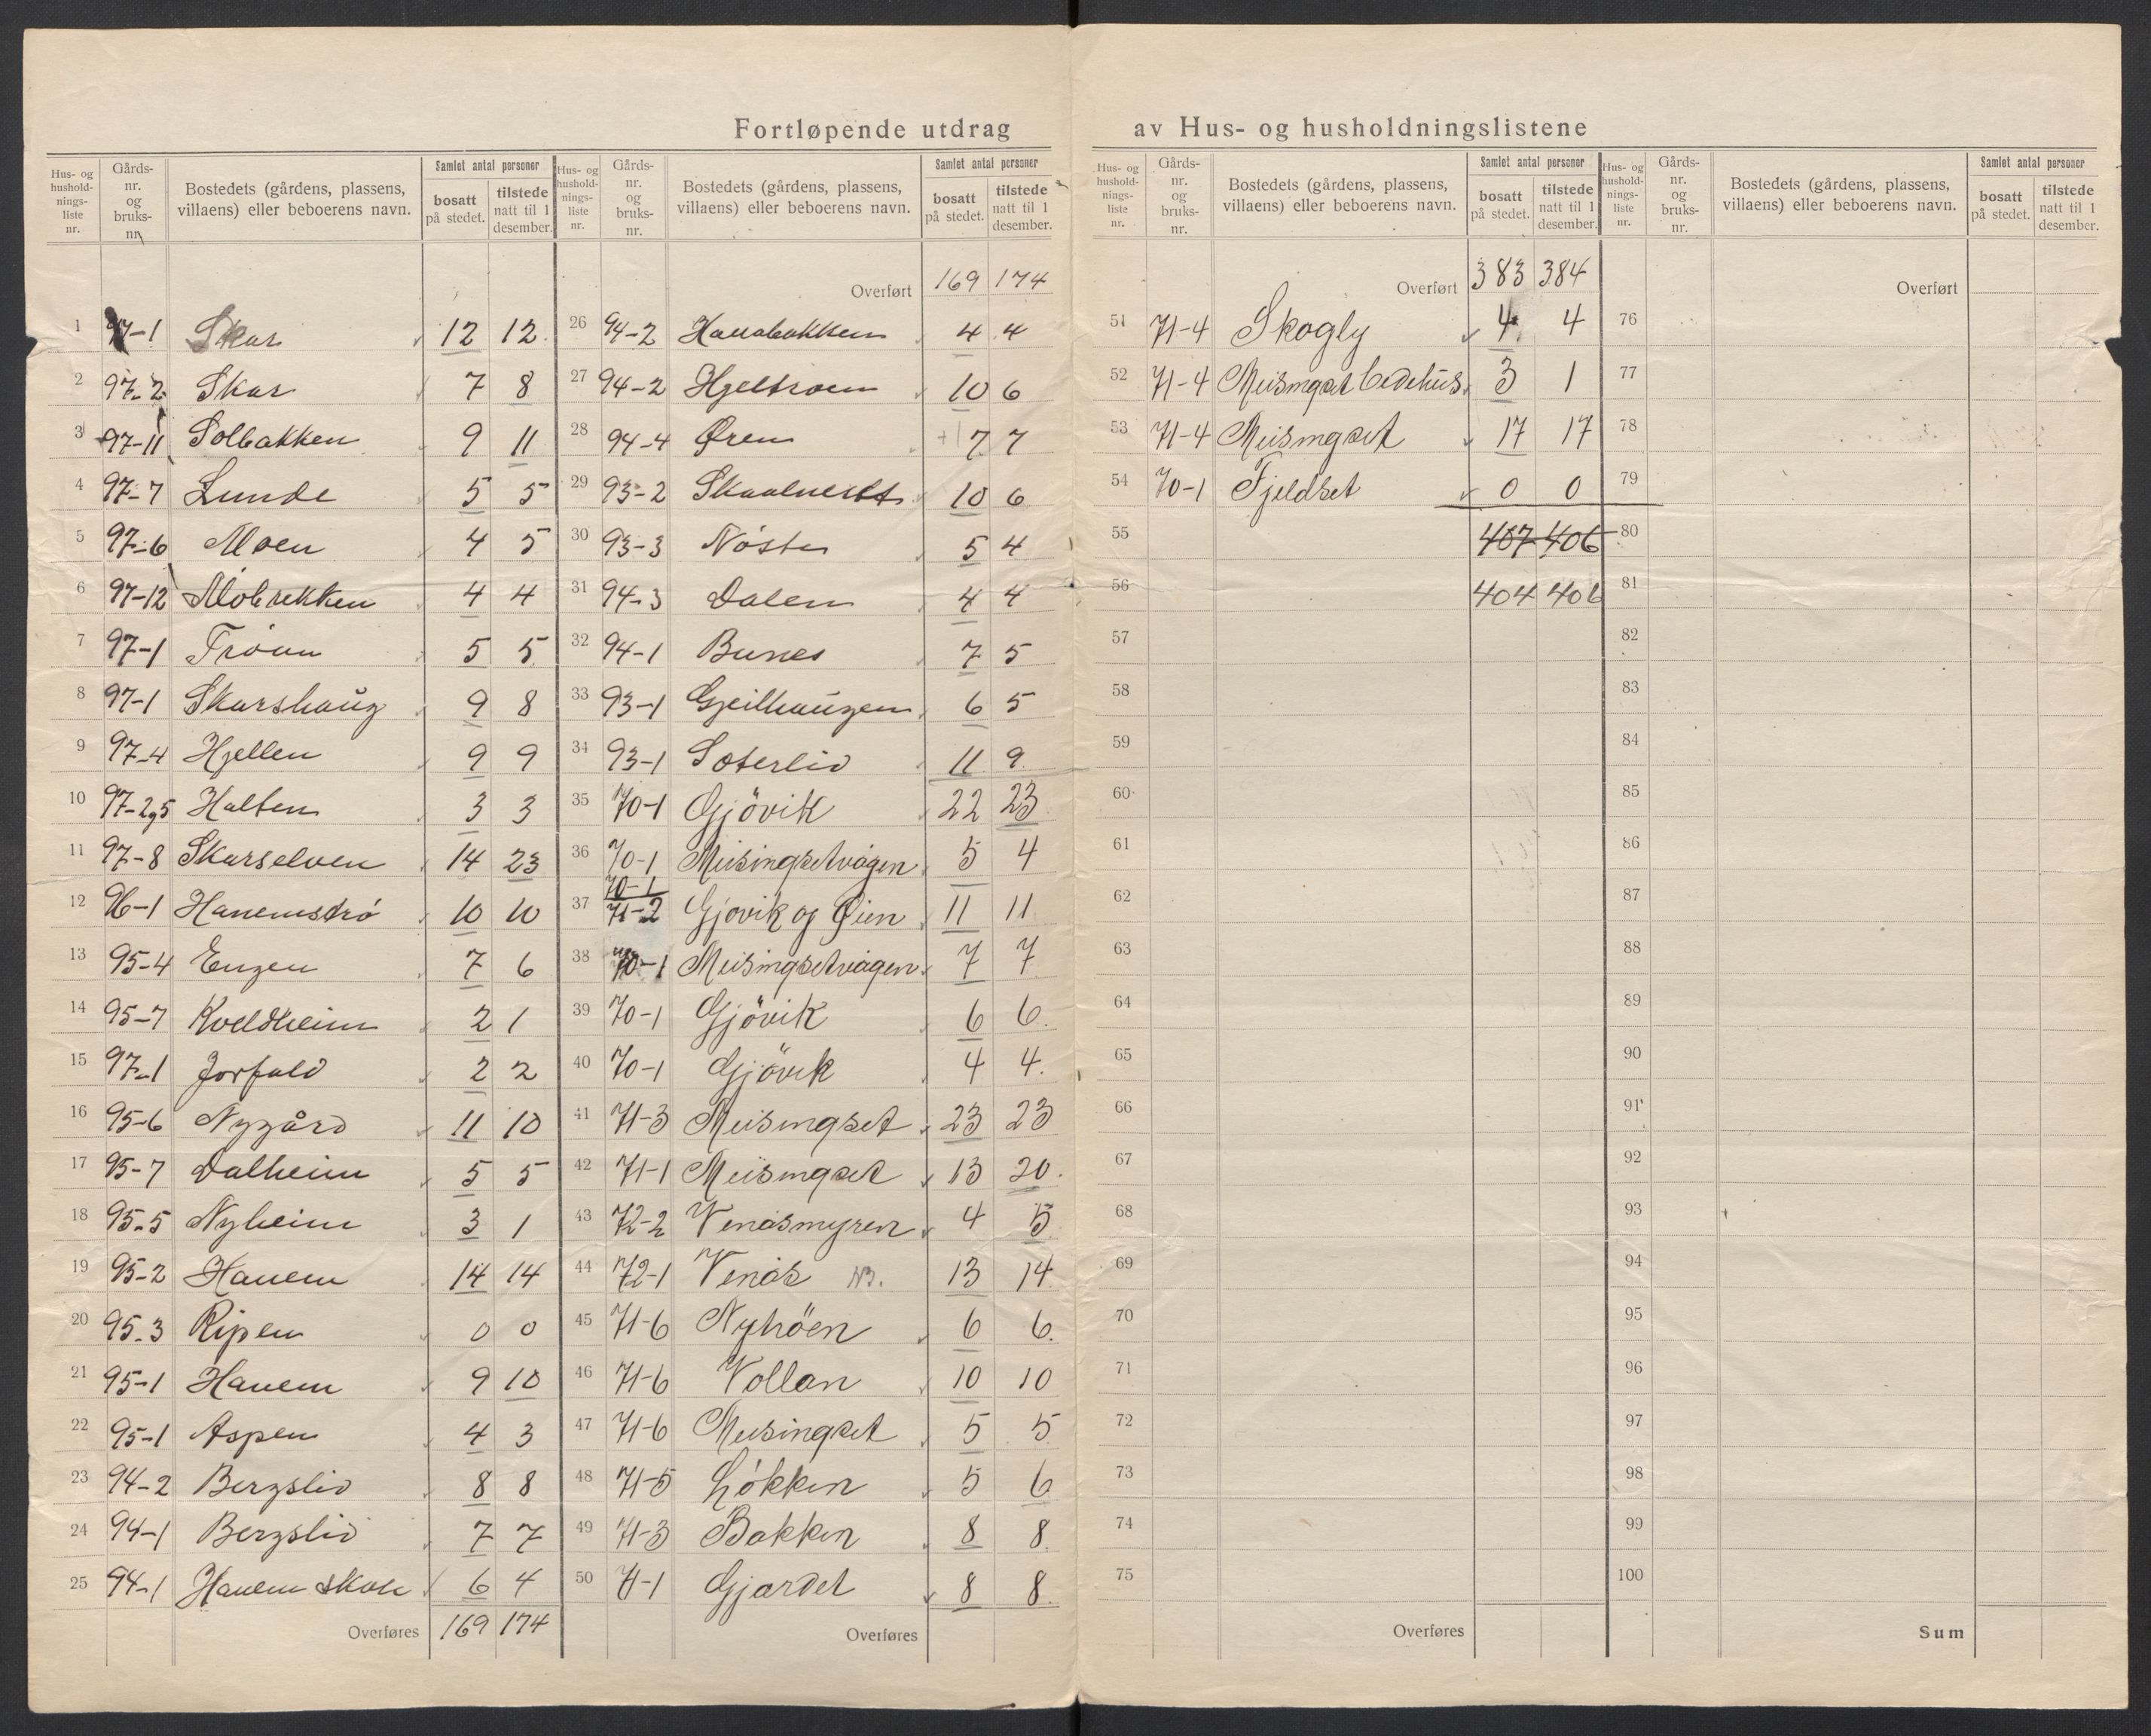 Fortløpende utdrag av Hus- og husholdningslistene
Hus- og hushold-nings-liste nr. | Gårds-nr. og bruks-nr. | Bostedets (gårdens, plassens, villaens) eller beboerens navn. | Samlet antal personer | bosatt på stedet. | tilstede natt til 1 desember.
1 97-1 Skar 12 12
2 97-2 Skar 7 8
3 97-11 Solbakken 9 11
4 97-7 Lunde 5 5
5 97-6 Moen 4 5
6 97-12 Mobrekken 4 4
7 97-1 Tröun 5 5
8 97-1 Skarshaug 9 8
9 97-4 Hjellen 9 9
10 97-2,5 Halten 3 3
11 97-8 Skarselven 14 23
12 96-1 Hanemströ 10 10
13 95-4 Engen 7 6
14 95-7 Kveldheim 2 1
15 97-1 Jorfald 2 2
16 95-6 Nygård 11 10
17 95-7 Dalheim 5 5
18 95-5 Nyheim 3 1
19 95-2 Hanem 14 14
20 95-3 Ripen 0 0
21 95-1 Hanem 9 10
22 95-1 Aspen 4 3
23 94-2 Bergslid 8 8
24 94-1 Bergslid 7 7
25 94-1 Hanem skole 6 4
Overføres 169 174
Hus- og hushold-nings-liste nr. | Gårds-nr. og bruks-nr. | Bostedets (gårdens, plassens, villaens) eller beboerens navn. | Samlet antal personer | bosatt på stedet. | tilstede natt til 1 desember.
Overført 169 174
26 94-2 Hanabakken 4 4
27 94-2 Hjeltroen 10 6
28 94-4 Øren +1 7 7
29 93-2 Skaalvedt 10 6
30 93-3 Nöste 5 4
31 94-3 Dalen 4 4
32 94-1 Bunes 7 5
33 93-1 Gjeilhaugen 6 5
34 93-1 Soterlid 11 9
35 70-1 Gjövik 22 23
36 70-1 Meisingsetvågen 5 4
37 70-1 71-2 Gjövik og Øien 11 11
38 70-1 Meisingsetvågen 7 7
39 70-1 Gjövik 6 6
40 70-1 Gjövik 4 4
41 71-3 Meisingset 23 23
42 71-1 Meisingset 13 20
43 72-2 Venåsmyren 4 5
44 72-1 Venås 13 14
45 71-6 Nyhöen 6 6
46 71-6 Vollan 10 10
47 71-6 Meisingset 5 5
48 71-5 Lökken 5 6
49 71-3 Bakken 8 8
50 71-1 Gjardet 8 8
Overføres
Hus- og hushold-nings-liste nr. | Gårds-nr. og bruks-nr. | Bostedets (gårdens, plassens, villaens) eller beboerens navn. | Samlet antal personer | bosatt på stedet. | tilstede natt til 1 desember.
Overført 383 384
51 71-4 Skogly 4 4
52 71-4 Meisingset bedehus 3 1
53 71-4 Meisingset 17 17
54 70-1 Fjeldset 0 0
55 407 406
56 404 406
57
58
59
60
61
62
63
64
65
66
67
68
69
70
71
72
73
74
75
Overføres
Hus- og hushold-nings-liste nr. | Gårds-nr. og bruks-nr. | Bostedets (gårdens, plassens, villaens) eller beboerens navn. | Samlet antal personer | bosatt på stedet. | tilstede natt til 1 desember.
Overført
76
77
78
79
80
81
82
83
84
85
86
87
88
89
90
91
92
93
94
95
96
97
98
99
100
Sum